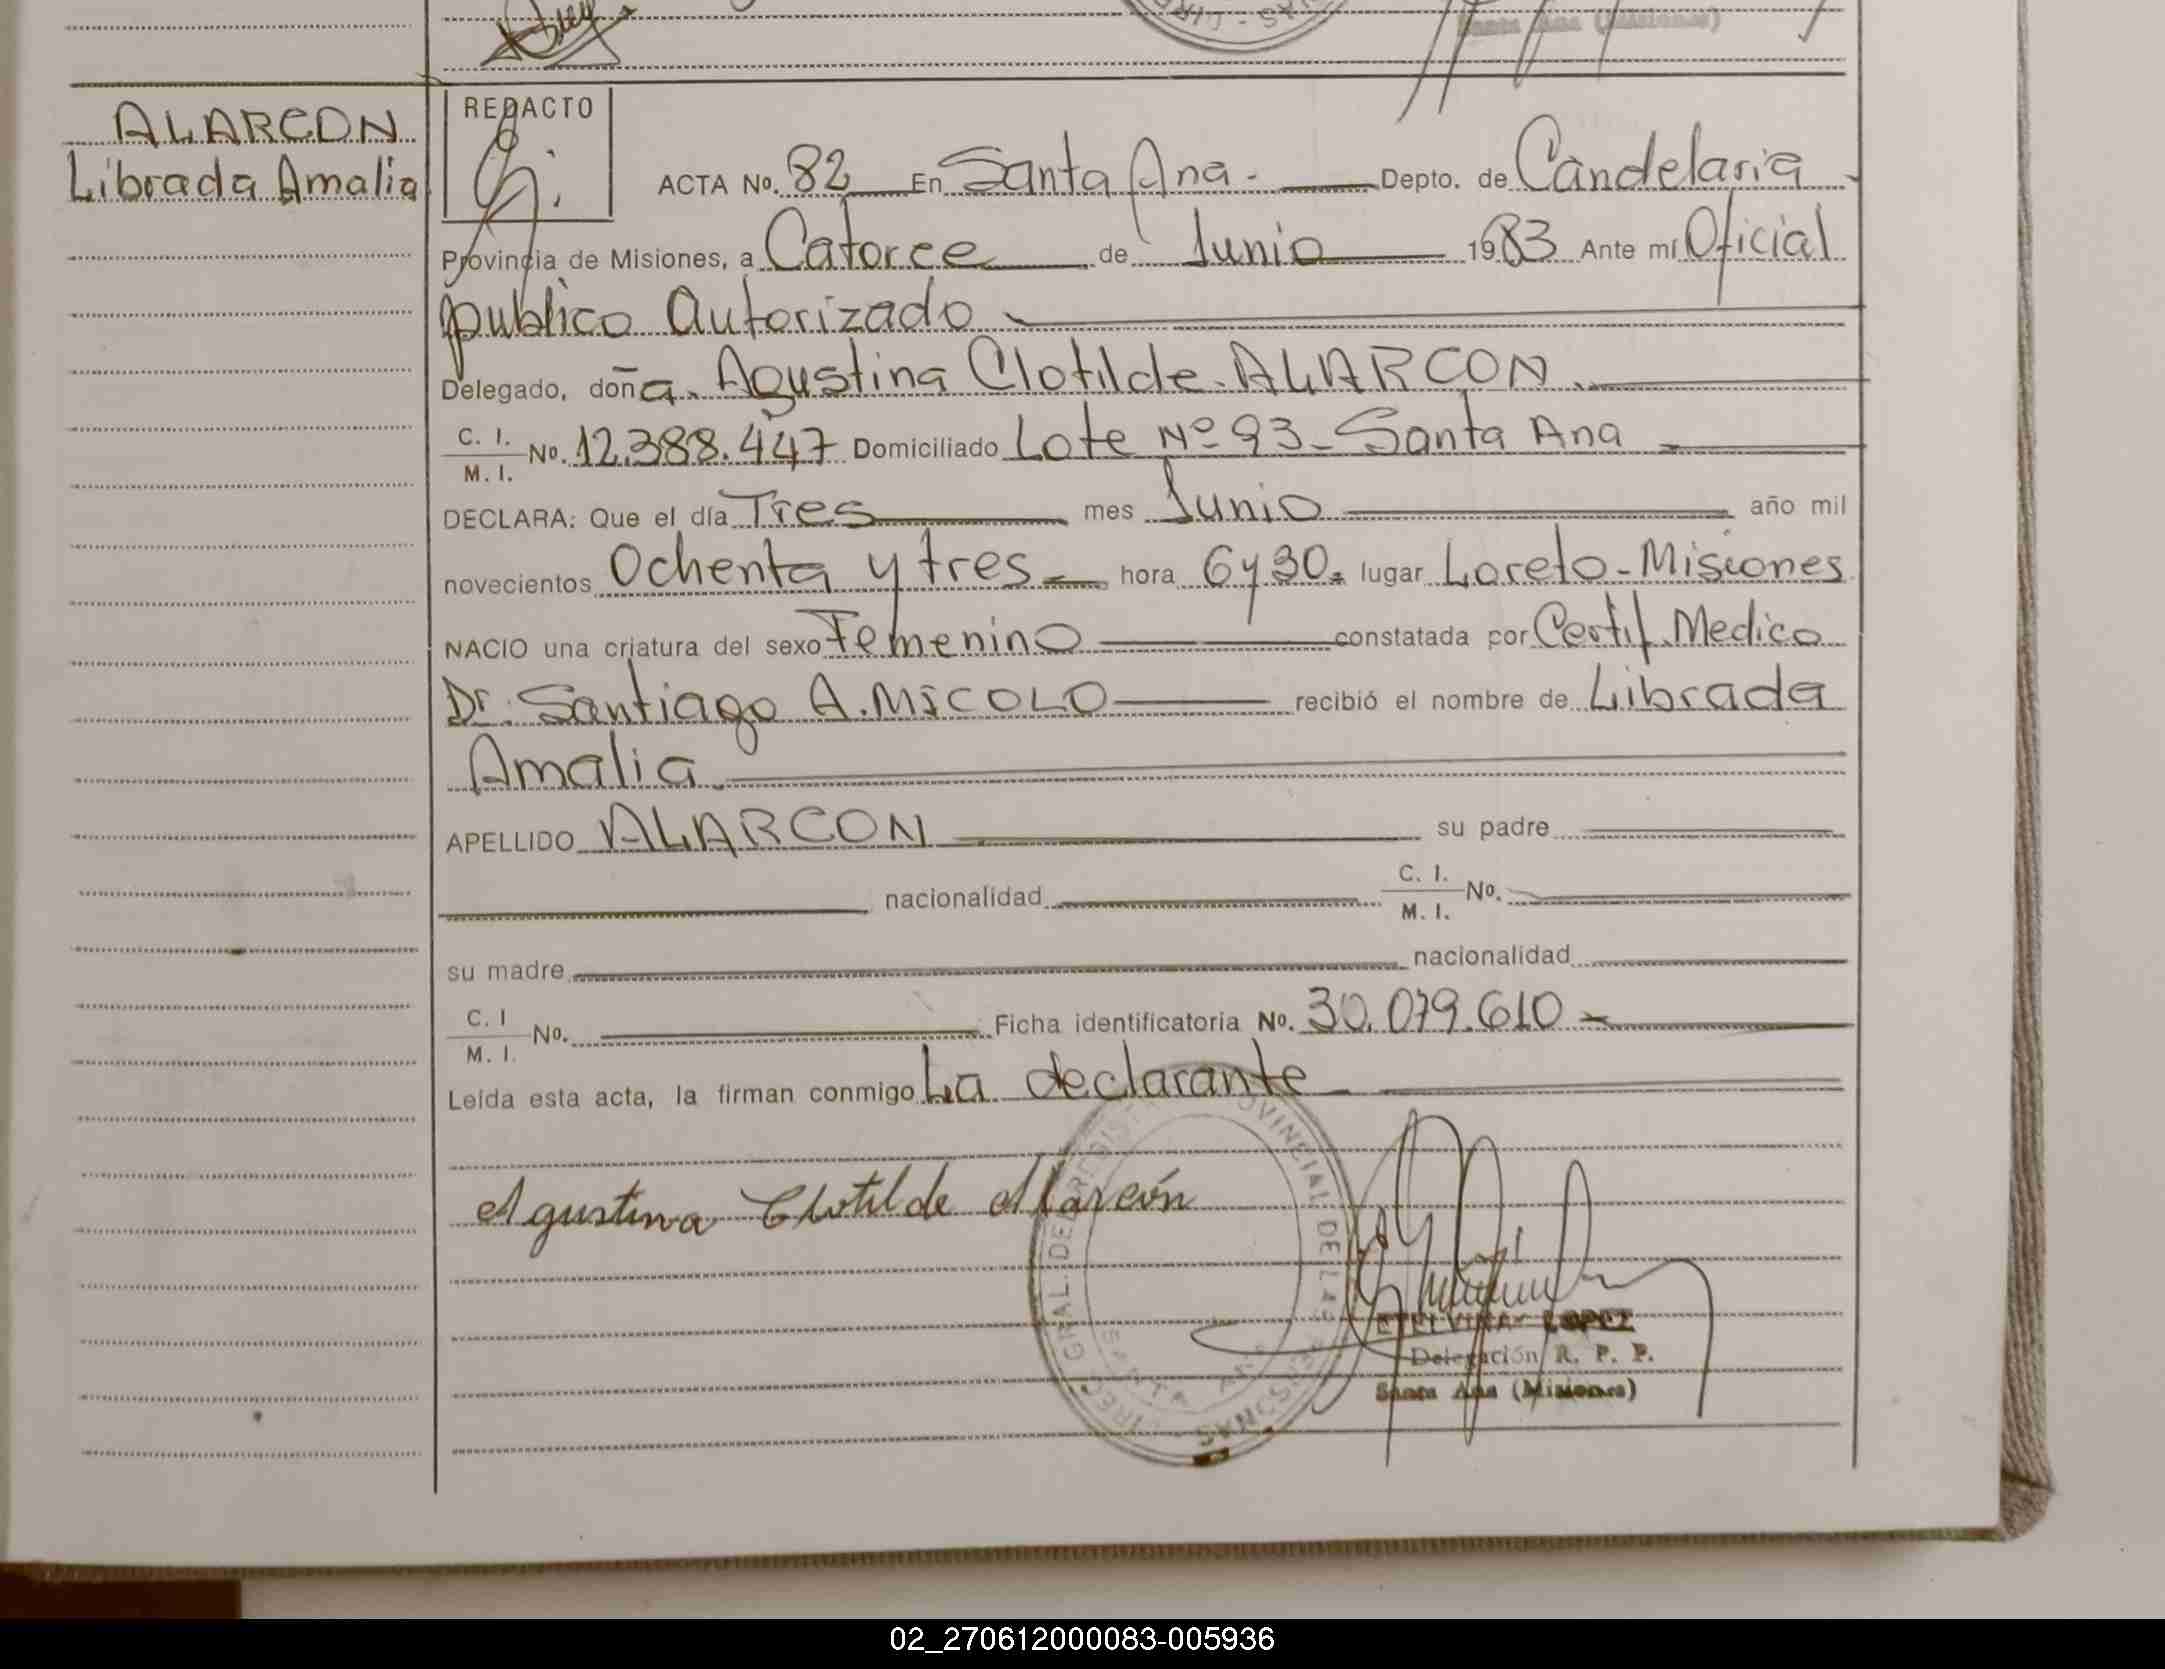 Santa Ana (Misiones)
ALARCON
Librada Amalia
REDACTO
ACTA No. 82 En Santa Ana - Depto. de Candelaria
Provincia de Misiones, a Catorce de Junio 1983 Ante mí Oficial
publico Autorizado
Delegado, doña. Agustina Clotilde ALARCON.
C. I.
M. I.
No. 12.388.447 Domiciliado Lote Nº 93 - Santa Ana
DECLARA: Que el día Tres mes Junio año mil
novecientos Ochenta y tres hora 6 y 30. lugar Loreto - Misiones
NACIO una criatura del sexo Femenino constatada por Certif. Medico
Dr. Santiago A. MICOLO recibió el nombre de Librada
Amalia
APELLIDO ALARCON su padre
nacionalidad C. I.
M. I. No.
su madre nacionalidad
C. I
M. I. No. Ficha identificatoria No. 30.079.610
Leída esta acta, la firman conmigo La declarante
Agustina Clotilde Alarcón
DIREC. GRAL. DEL REGIST PROVINCIAL DE LAS PERSONAS
SANTA ANA
ETELVINA LOPEZ
Delegación R. P. P.
Santa Ana (Misiones)
02_270612000083-005936